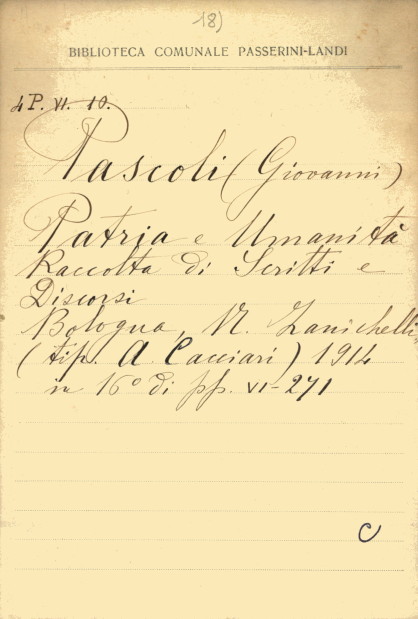 18)
BIBLIOTECA COMUNALE PASSERINI-LANDI
4 P. VI. 10.
Pascoli (Giovanni)
Patria e Umanità
Raccolta di Scritti e
Discorsi
Bologna, N. Zanichelli,
(tip. A. Cacciari) 1914
in 16° di pp. VI-271
C